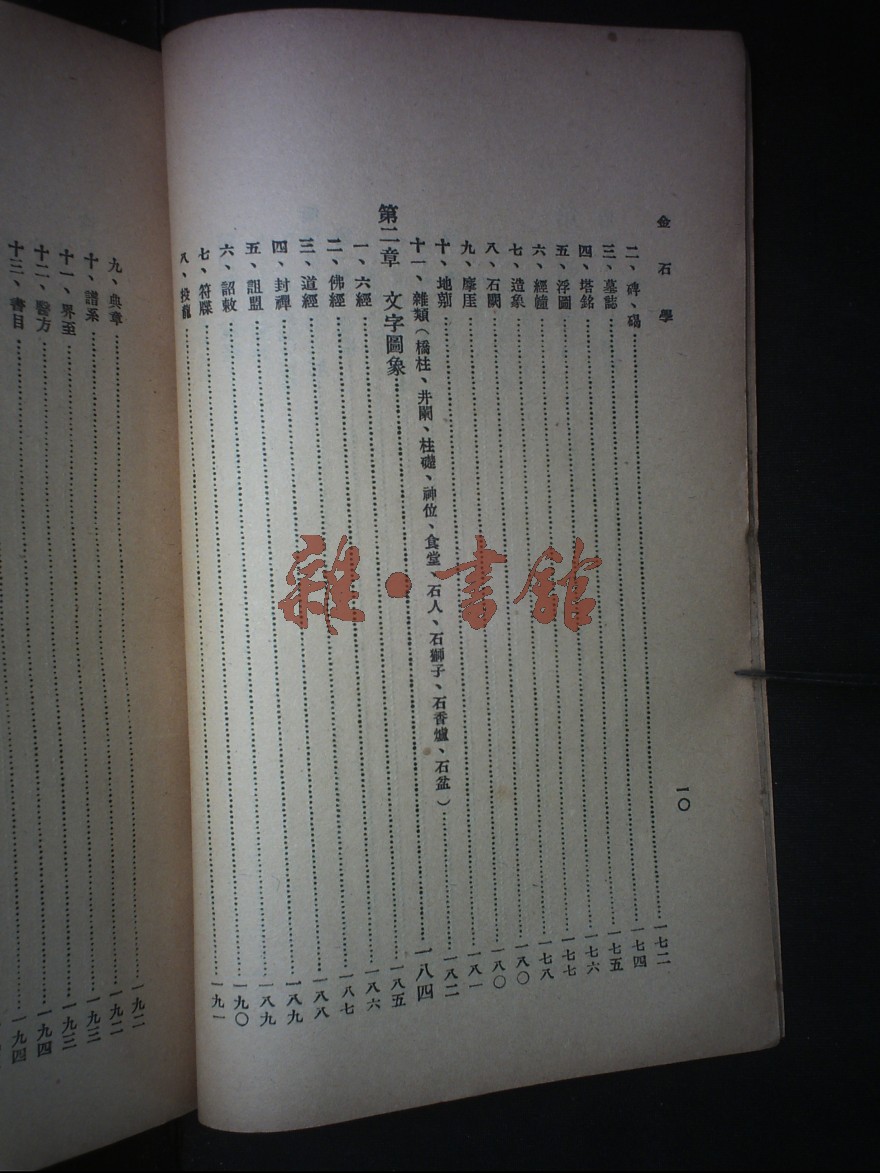 金石學
一〇
二、碑、碣……一七二
三、墓誌……一七四
四、塔銘……一七五
五、浮圖……一七六
六、經幢……一七七
七、造象……一七八
八、石闕……一八〇
九、摩厓……一八〇
十、地莂……一八一
十一、雜類（橋柱、井闌、柱礎、神位、食堂、石人、石獅子、石香爐、石盆）……一八二
第二章 文字圖象……一八四
一、六經……一八五
二、佛經……一八六
三、道經……一八七
四、封禪……一八八
五、詛盟……一八九
六、詔敕……一八九
七、符牒……一九〇
八、投龍……一九一
九、典章……一九二
十、譜系……一九二
十一、界至……一九三
十二、醫方……一九三
十三、書目……一九四
一九四
雜·書館